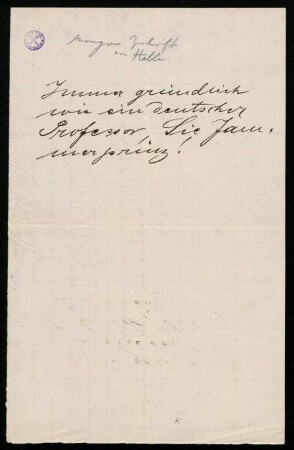 anonyme Zuschrift
in Halle
Immer gründlich
wie ein deutscher
Professor, Sie Jam-
merprinz!